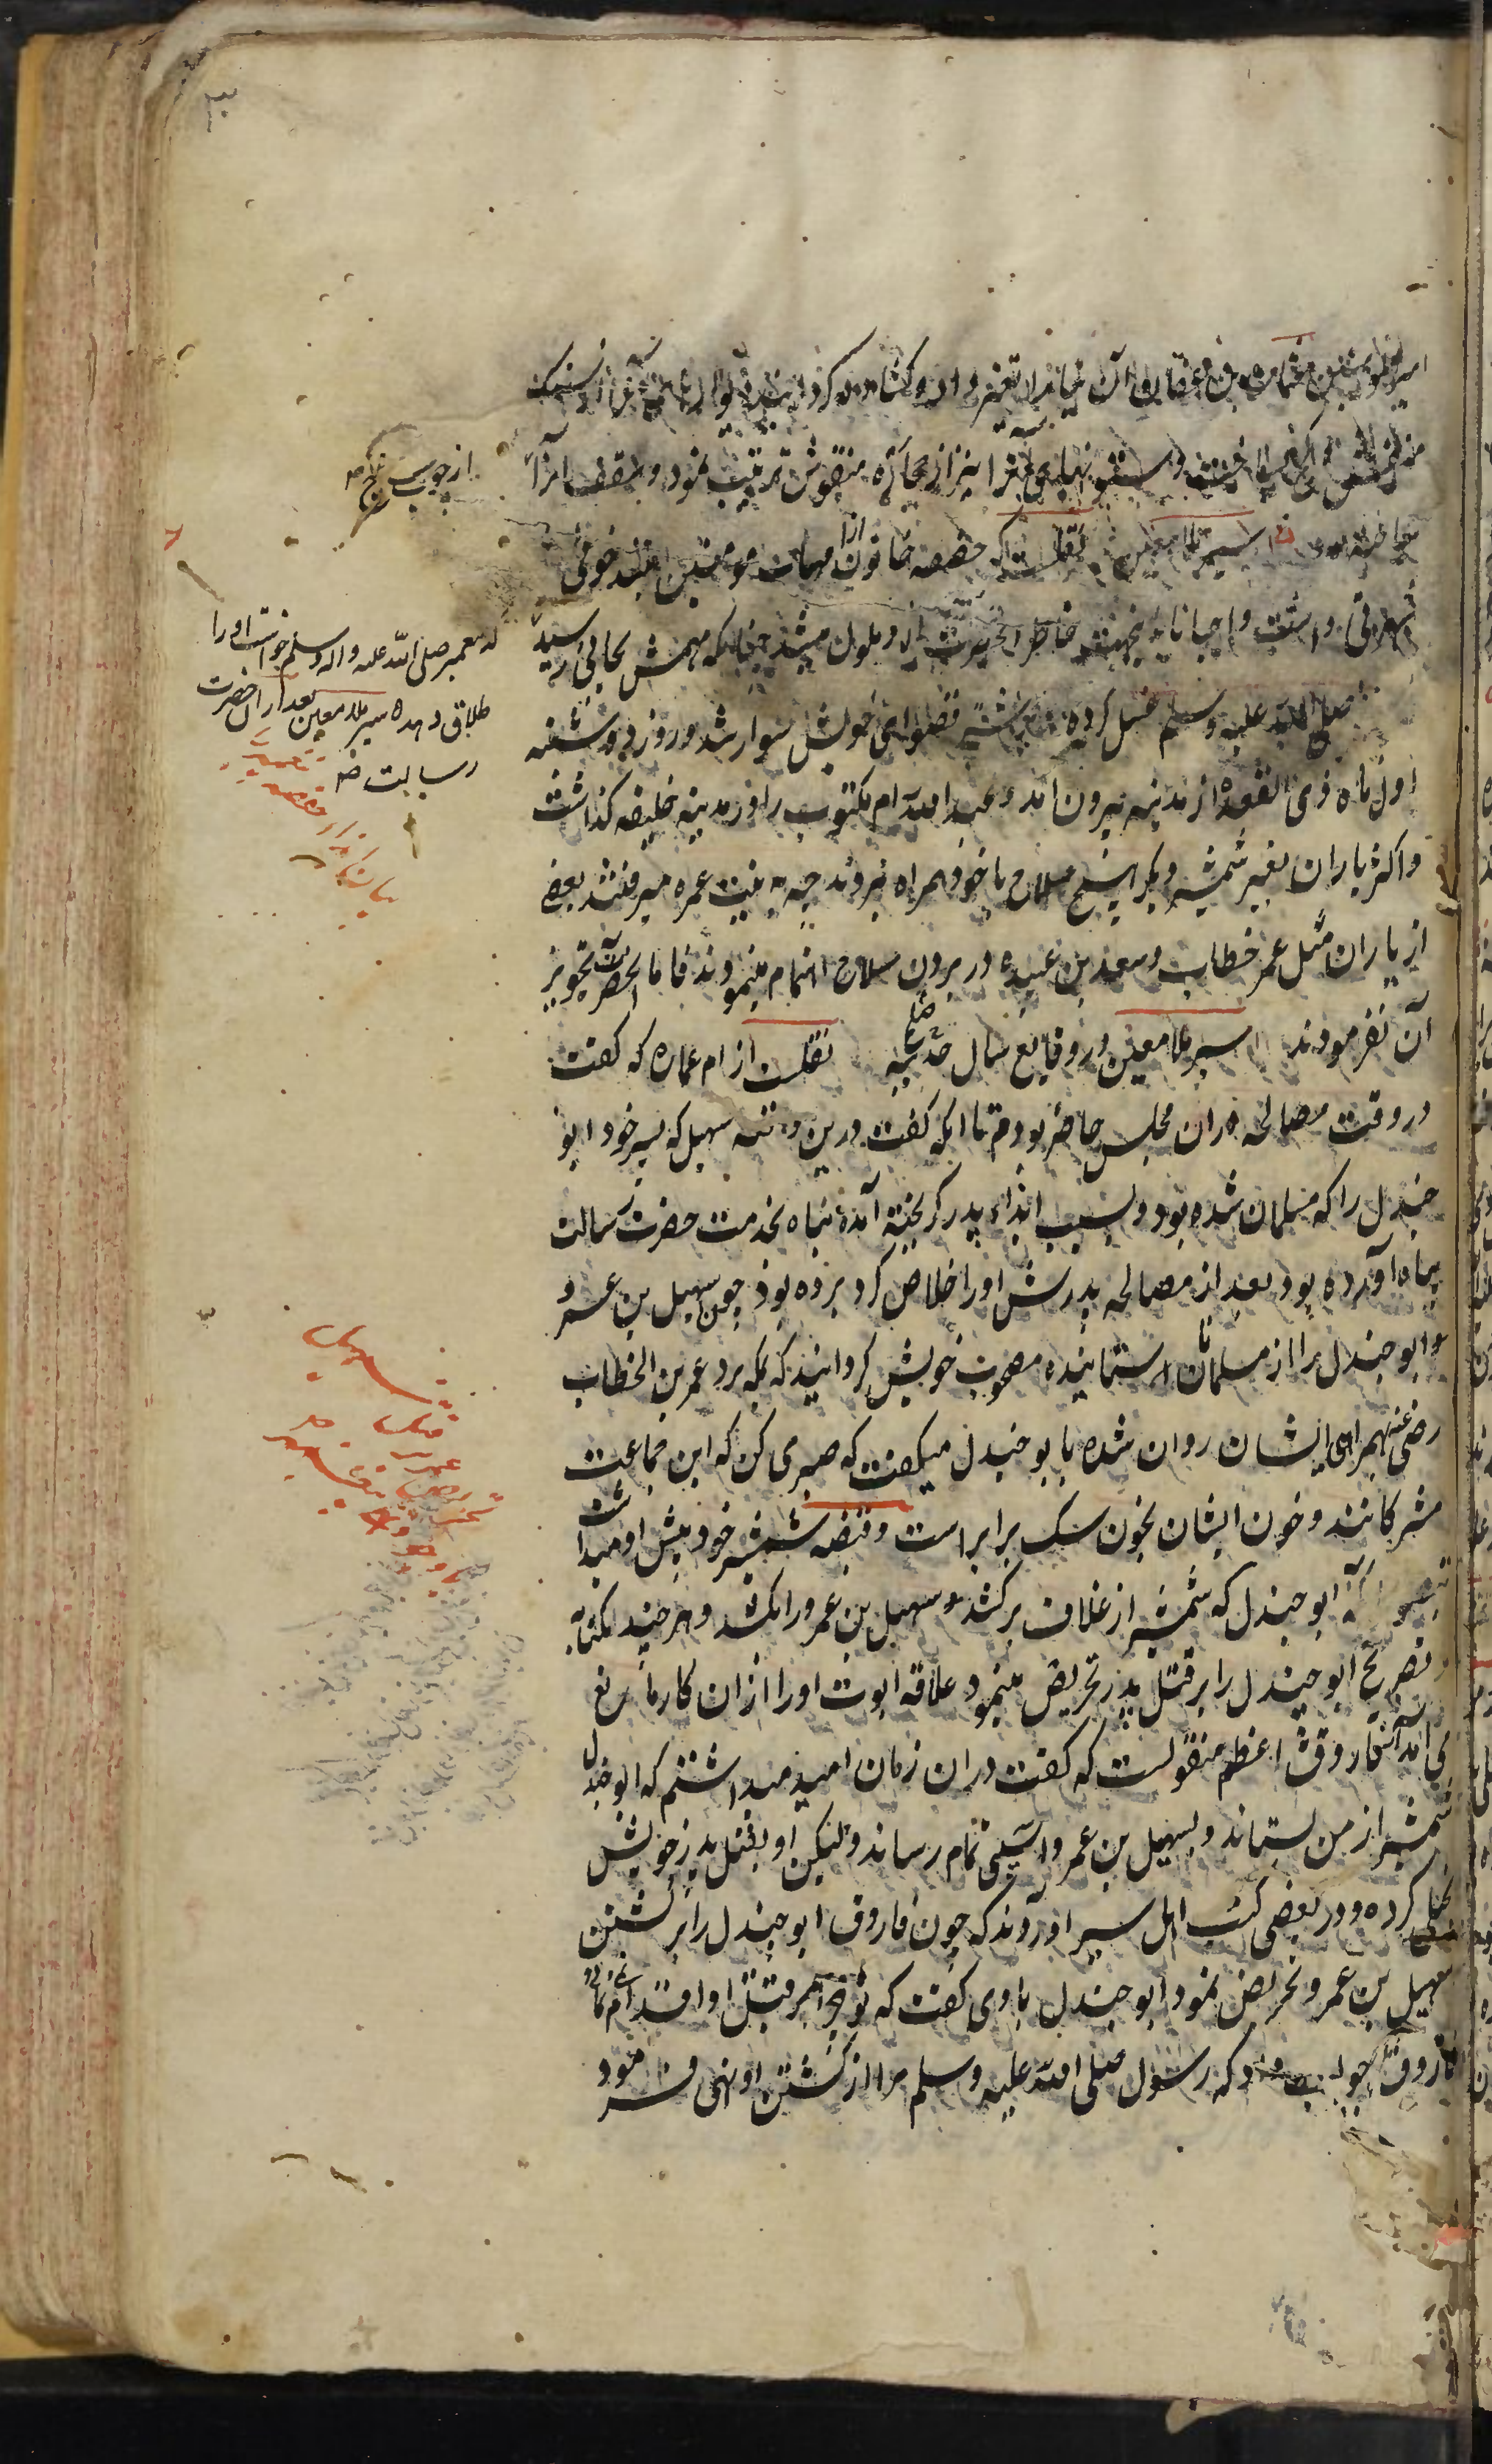 امیرالمومنین عثمان بن عفان آن بنا را تغییر داد و کشاده کردانید و دیوارهای آنرا از سنک
منقش ساخت و ستونهای آنرا نیز از حجاره منقوش ترتیب نمود و سقف آنرا
از چوب ساج
سیر ملا معین نقلست که حفصه خاتون از امهات مومنین تند خوئی
شهرتی داشت و احیانا بدین جهت خاطر انحضرت از و ملول میشد چنانکه مهمش بجائی رسید
که پیغمبر صلی الله علیه واله وسلم خواست او را
طلاق دهد سیر ملا معین بعد از ان حضرت
رسالت
صلی الله علیه وسلم غسل کرده بر ناقه قصوای خویش سوار شد و روز دوشنبه
اول ماه ذی القعده از مدینه بیرون امد و عبد الله ام مکتوب را در مدینه خلیفه کذاشت
و اکثر یاران بغیر شمشیر دیکر هیچ سلاح با خود همراه نبردند چه به نیت عمره میرفتند بعضی
از یاران مثل عمر خطاب و سعد بن عبیده در بردن سلاح اهتمام مینمودند فاما انحضرت تجویز
آن نفرمودند سیر ملا معین در وقایع سال حدیبیه نقلست از ام عماره که کفت
در وقت مصالحه دران مجلس حاضر بودم تا انکه کفت درین وقت سهیل که پسر خود ابو
جندل را که مسلمان شده بود و بسبب ایذاء پدر کریخته آمده پناه بخدمت حضرت رسالت
پناه آورده بود بعد از مصالحه پدرش او را خلاص کرد برده بود چون سهیل بن عمرو
ابو جندل را از مسلمانان استمانیده مصحوب خویش کردانید که بمکه برد عمر بن الخطاب
رضی عنه همراهی ایشان روان شده با ابو جندل میکفت که صبر می کن که این جماعت
مشرکانند و خون ایشان بخون سک برابر است و قبضه شمشیر خود پیش او میداشت
ابو جندل که شمشیر از غلاف برکشد و سهیل بن عمرو را بکشد و هر چند بکنایه
و تصریح ابو جندل را بر قتل پدر تحریض مینمود علاقه ابوت او را ازان کار مانع
می امد از فاروق اعظم منقولست که کفت دران زمان امید میداشتم که ابو جندل
شمشیر از من بستاند و بسهیل بن عمرو آسیبی تمام رساند ولیکن او بقتل پدر خویش
بخل کرده و در بعضی کتب اهل سیر اورده‌اند که چون فاروق ابو جندل را بر کشتن
سهیل بن عمرو تحریض نمود ابو جندل با وی کفت که تو چرا بر قتل او اقدام نمی نمائی
فاروق جواب داد که رسول صلی الله علیه وسلم مرا از کشتن او نهی فرمود